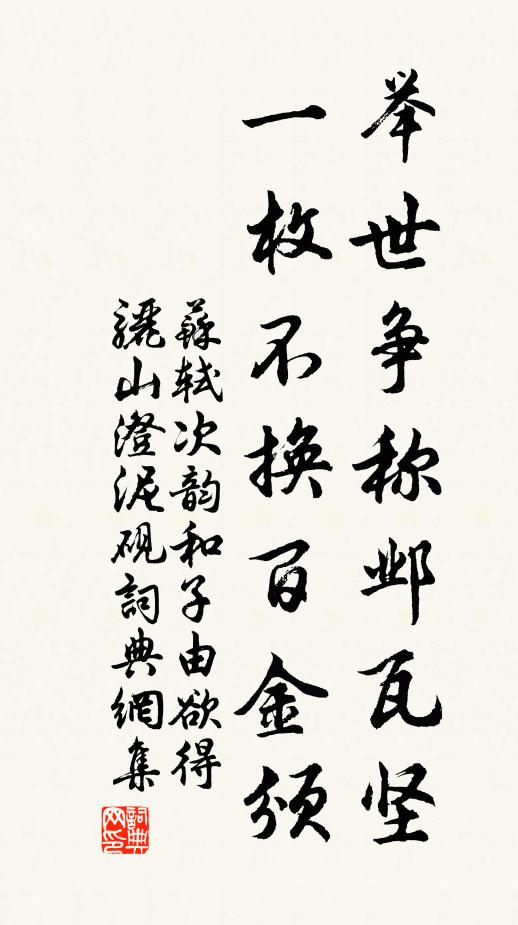 举世争称邺瓦坚
一枚不换百金颁
蘇軾次韵和子由欲得
驪山澄泥硯詞典網集
詞典
网印